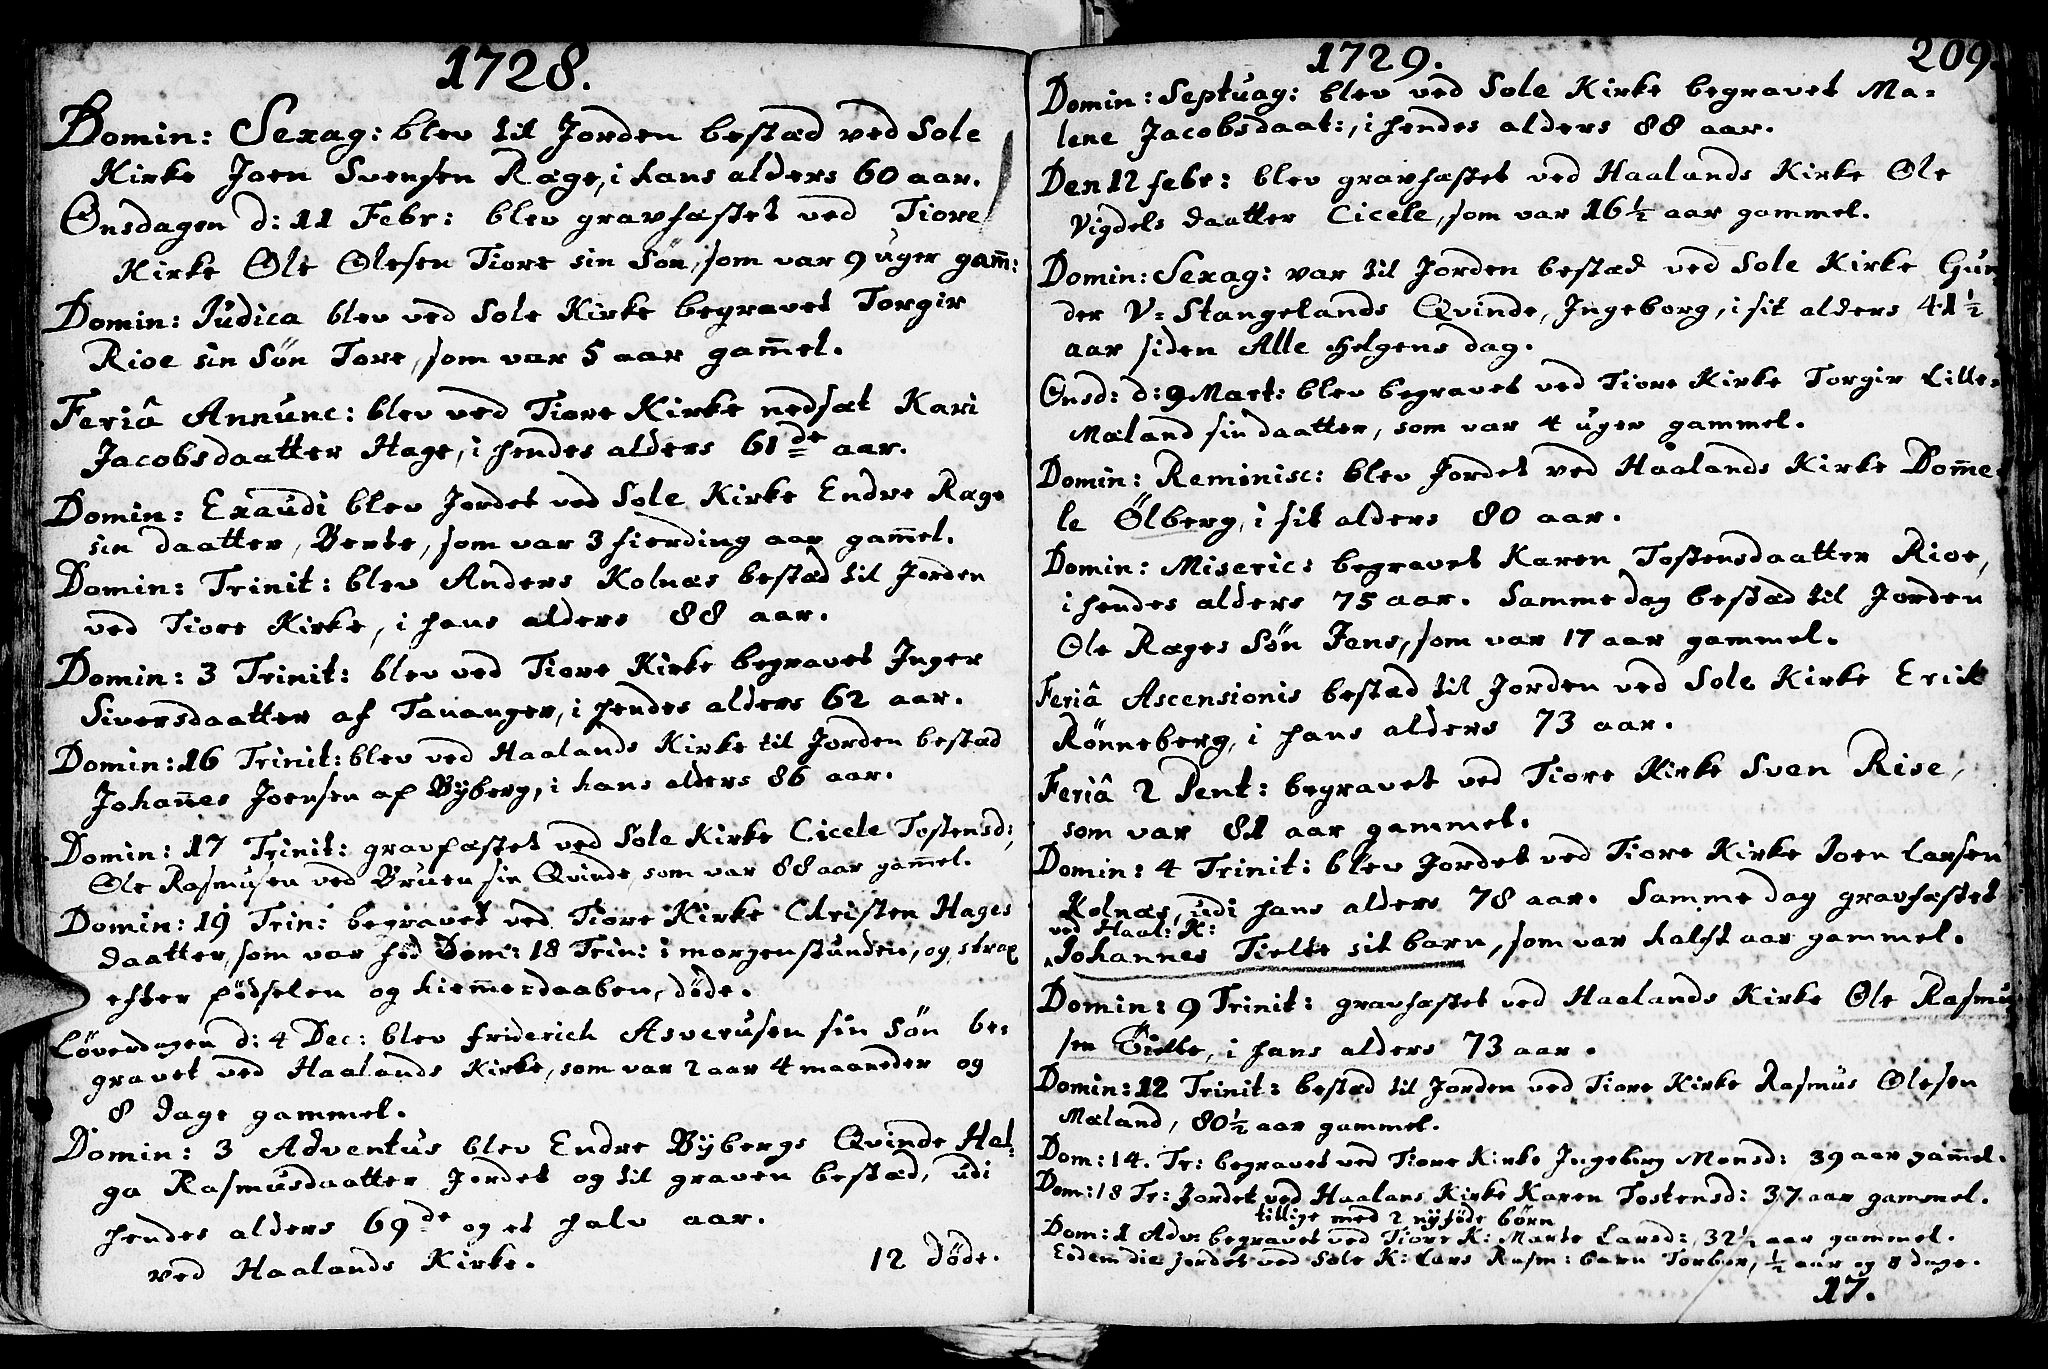 1728.
Domin: Sexag: blev til Jorden bestæd ved Sole
Kirke Joen Svensen Ræge, i hans alders 60 aar.
Onsdagen d: 11 Febr: blev gravfæstet ved Tiore
Kirke Ole Olesen Tiore sin Sön, som var 9 uger gam̄:
Domin: Judica blev ved Sole Kirke begravet Torgir
Rioe sin Sön Tore, som var 5 aar gam̄el.
Feriâ Annunc: blev ved Tiore Kirke nedsat Kari
Jacobsdaatter Hage, i hendes alders 61de aar.
Domin: Exaudi blev Jordet ved Sole Kirke Endre Ræge
sin daatter, Berte, som var 3 fierding aar gam̄el.
Domin: Trinit: blev Anders Kolnæs bestæd til Jorden
ved Tiore Kirke, i hans alders 88 aar.
Domin: 3 Trinit: blev ved Tiore Kirke begravet Inger
Siversdaatter af Tananger, i hendes alders 62 aar.
Domin: 16 Trinit: blev ved Haalands Kirke til Jorden bestæd
Johan̄es Joensen af Bÿberg, i hans alders 86 aar.
Domin: 17 Trinit: gravfæstet ved Sole Kirke Cicele Tostensd:,
Ole Rasmusen ved Bruen sin Qvinde, som var 88 aar gam̄el.
Domin: 19 Trin: begravet ved Tiore Kirke Christen Hages
daatter, som var föd Dom: 18 Trin: i morgenstunden, og strax
efter födselen og hiem̄e=daaben, döde.
Löverdagen d: 4 Dec: blev friderich Asverusen sin Sön be=
gravet ved Haalands Kirke, som var 2 aar 4 maaneder og
8 dage gammel.
Domin: 3 Adventus blev Endre Bÿbergs Qvinde Hel=
ga Rasmusdaatter Jordet og til graven bestæd, udi
hendes alders 69de og et halv aar.
ved Haalands Kirke.
12 döde.
1729.
209.
Domin: Septuag: blev ved Sole Kirke begravet Ma=
lene Jacobsdaat:, i hendes alders 88 aar.
Den 12 febr: blev gravfæstet ved Haalands Kirke Ole
Vigdels daatter Cicele, som var 16½ aar gammel.
Domin: Sexag: var til Jorden bestæd ved Sole Kirke Gun
der V= Stangelands Qvinde, Ingeborg, i sit alders 41½
aar siden Alle Helgens dag.
Onsd: d: 9 Mart: blev begravet ved Tiore Kirke Torgir Lille=
Mæland sin daatter, som var 4 uger gammel.
Domin: Reminisc: blev Jordet ved Haalands Kirke Dom̄e=
le Ölberg, i sit alders 80 aar.
Domin: Miseric: begravet Karen Tostensdaatter Rioe,
i hendes alders 75 aar. Samme dag bestæd til Jorden
Ole Ræges Sön Jens, som var 17 aar gammel.
Feriâ Ascensionis bestæd til Jorden ved Sole Kirke Erik
Rönneberg, i hans alders 73 aar.
Feriâ 2 Pent: begravet ved Tiore Kirke Sven Rise,
som var 81 aar gammel.
Domin: 4 Trinit: blev Jordet ved Tiore Kirke Joen Larsen
Kolnæs, udi hans alders 78 aar. Samme dag gravfæstet
ved Haal: K:
Johannes Tielte sit barn, som var halft aar gammel.
Domin: 9 Trinit: gravfæstet ved Haalands Kirke Ole Rasmu
sen, i hans alders 73 aar.
Domin: 12 Trinit: bestæd til Jorden ved Tiore Kirke Rasmus Olesen
Mæland, 80½ aar gammel.
Dom: 14. Tr: begravet ved Tiore Kirke Ingeborg Monsd: 39 aar gam̄el.
Dom: 18 Tr: Jordet ved Haalans Kirke Karen Tostensd: 37 aar gammel.
tillige med 2 nÿföde börn
Dom: 1 Adv: begravet ved Tiore K: Marte Larsd: 32½ aar gammel.
Eodem die jordet ved Sole K: Lars Rasm: barn Torbor, ½ aar og 8 dage.
17.